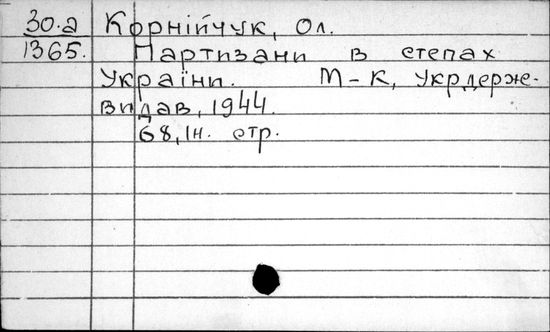 30.а Корнійчук, Ол.
1365. Партизани в степах
України. М-К, Укрдерж-
видав, 1944.
68, Iн. стр.